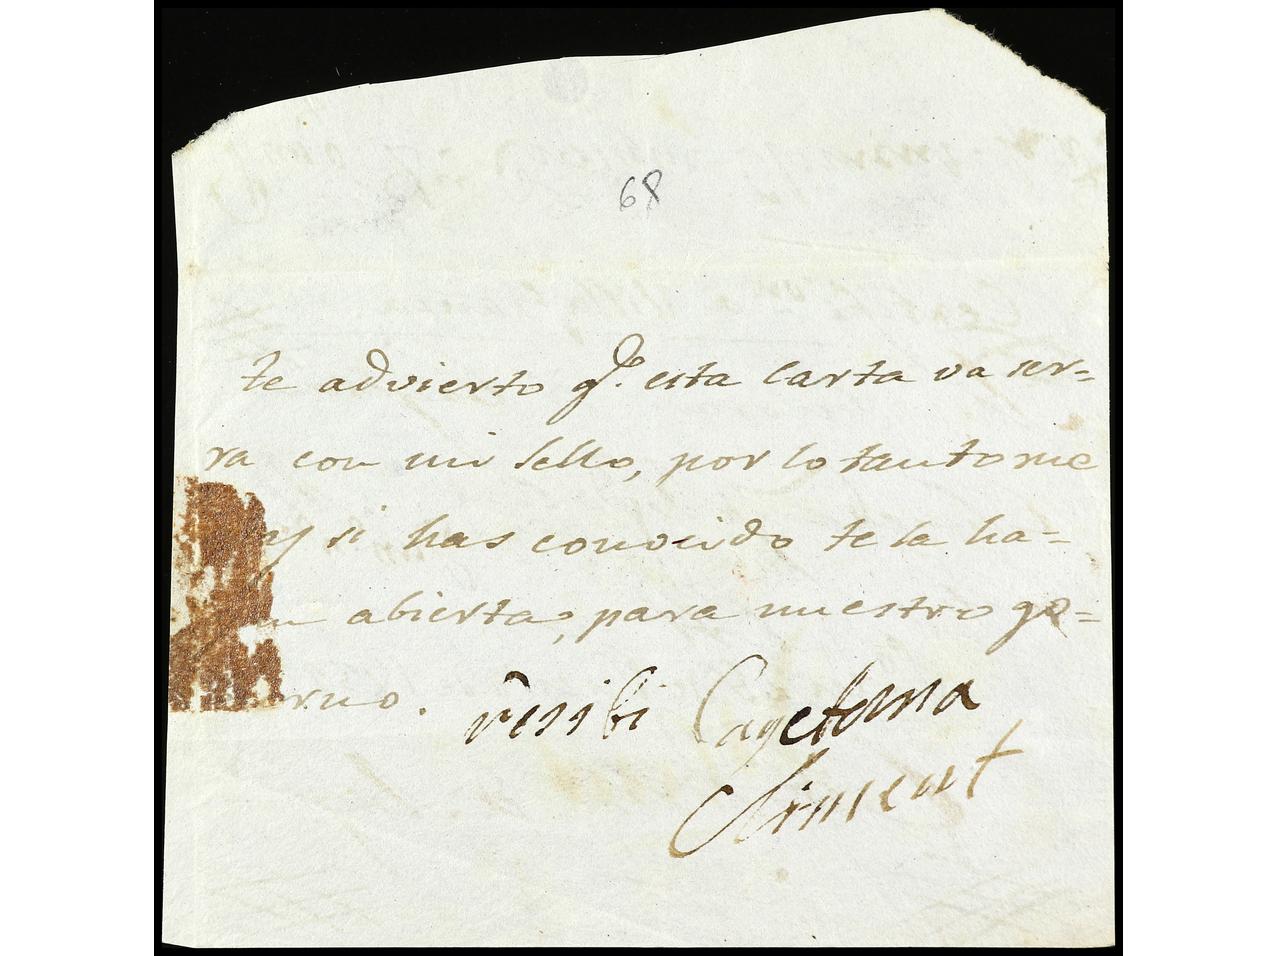 68
te advierto qe. esta carta va ser=
ra con mi sello, por lo tanto me
y si has conocido te la ha=
n abierta, para nuestro go=
erno.
resibi Cayetana
Climent